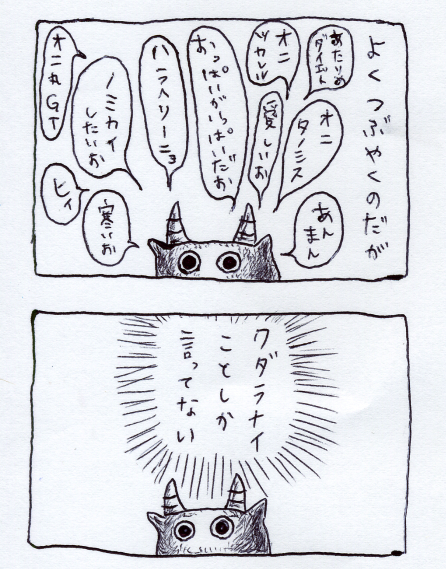 よくつぶやくのだが
あたりめ
ダイエット
オニ
ツカレル
オニ
タノシス
愛しいお
おっぱいがらっぱいだお
ハラヘリーニョ
ノミカイ
したいお
オニ丸GT
ヒィ
寒いお
あん
まん
クダラナイ
ことしか
言ってない